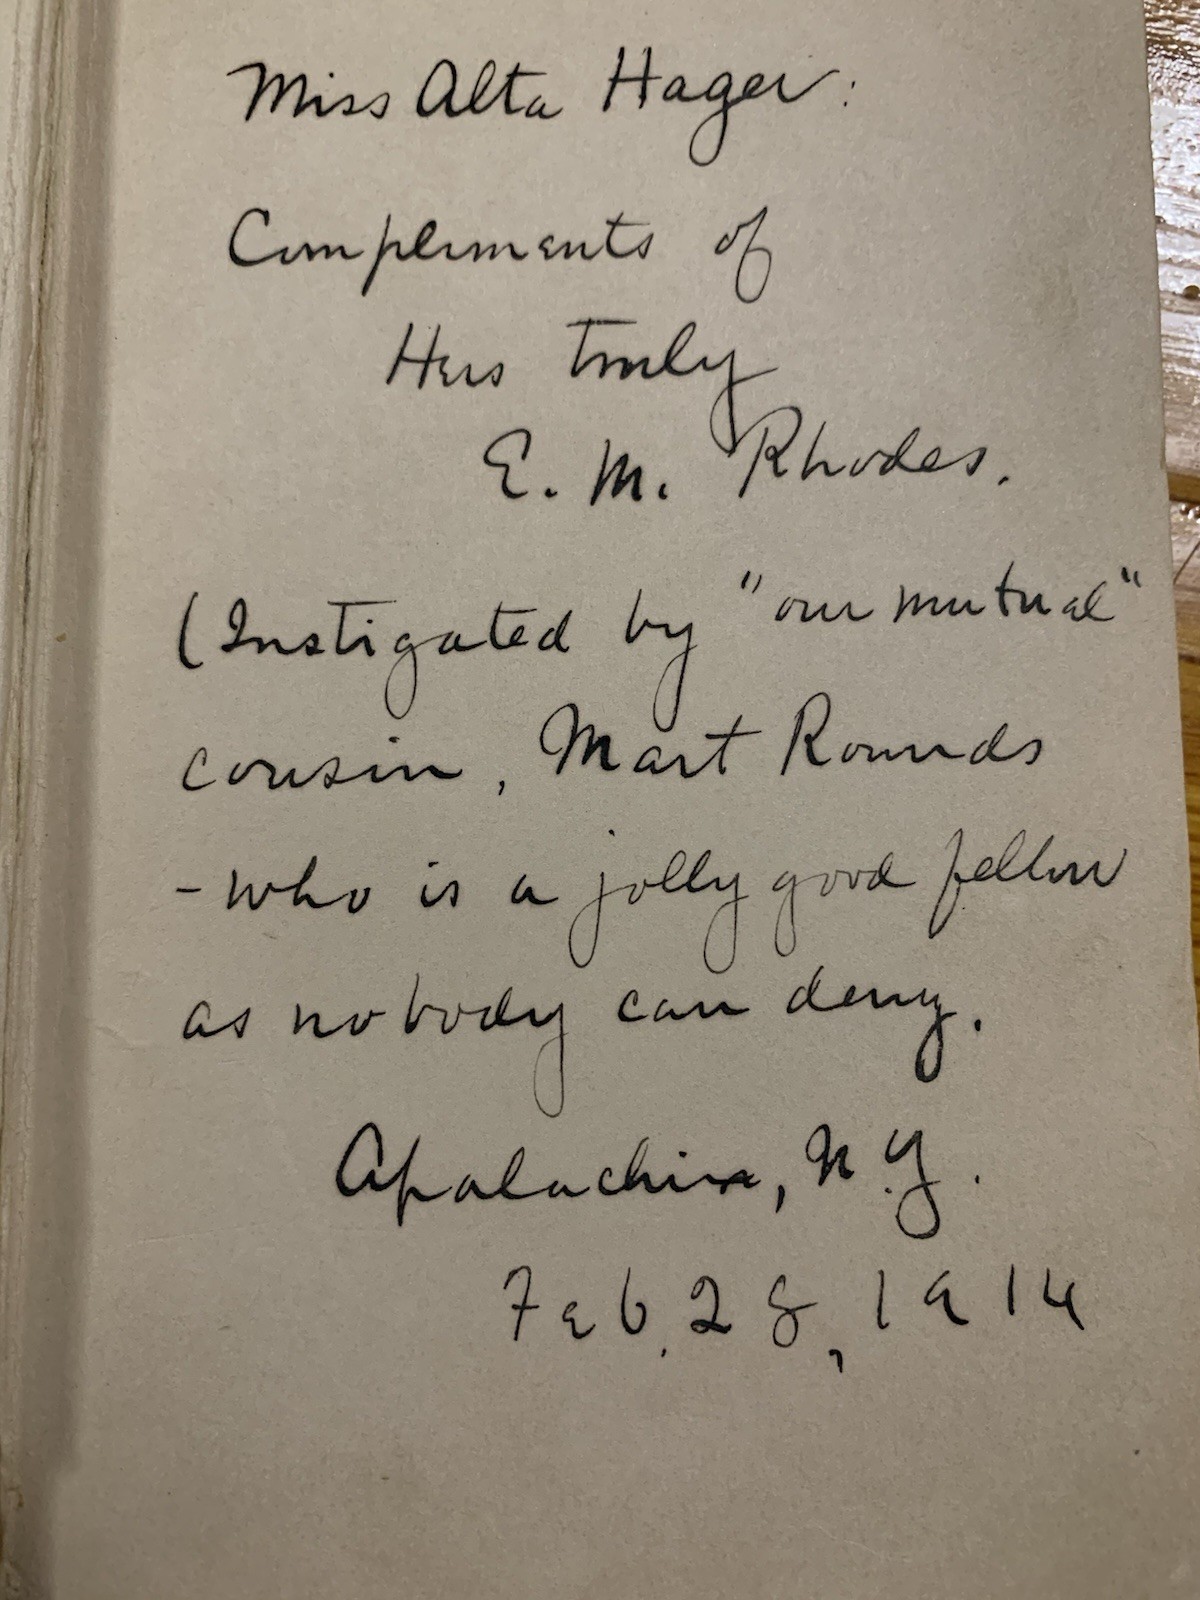 Miss Alta Hager:
Compliments of
Hers truly
E. M. Rhodes.
(Instigated by "our mutual"
cousin, Mart Rounds
- who is a jolly good fellow
as nobody can deny.
Apalachin, N.Y.
Feb. 28, 1914